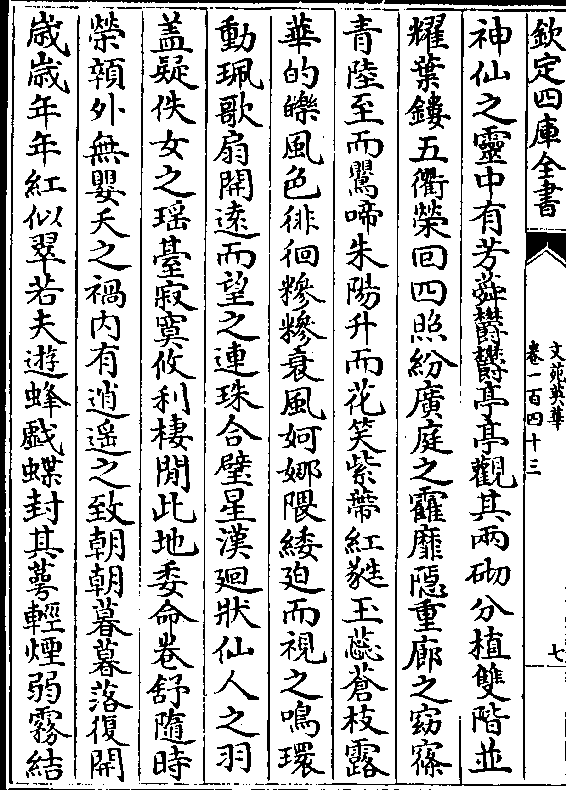 欽定四庫全書
文苑英華
卷一百四十三
七
神仙之靈中有芳蕣欝欝亭亭觀其兩砌分植雙階並
耀葉鏤五衢榮回四照紛廣庭之靃靡隱重廊之窈窱
青陸至而鸎啼朱陽升而花笑紫蔕紅蕤玉蘂蒼枝露
華的皪風色徘徊糝糝衰風妸娜隈緌廹而視之鳴環
動珮歌扇開逺而望之連珠合璧星漢廻狀仙人之羽
盖疑佚女之瑶臺寂寞攸利棲閒此地委命卷舒隨時
榮顇外無嬰夭之禍内有逍遥之致朝朝暮暮落復開
歳歳年年紅似翠若夫遊蜂戯蝶封其蕚輕煙弱霧結